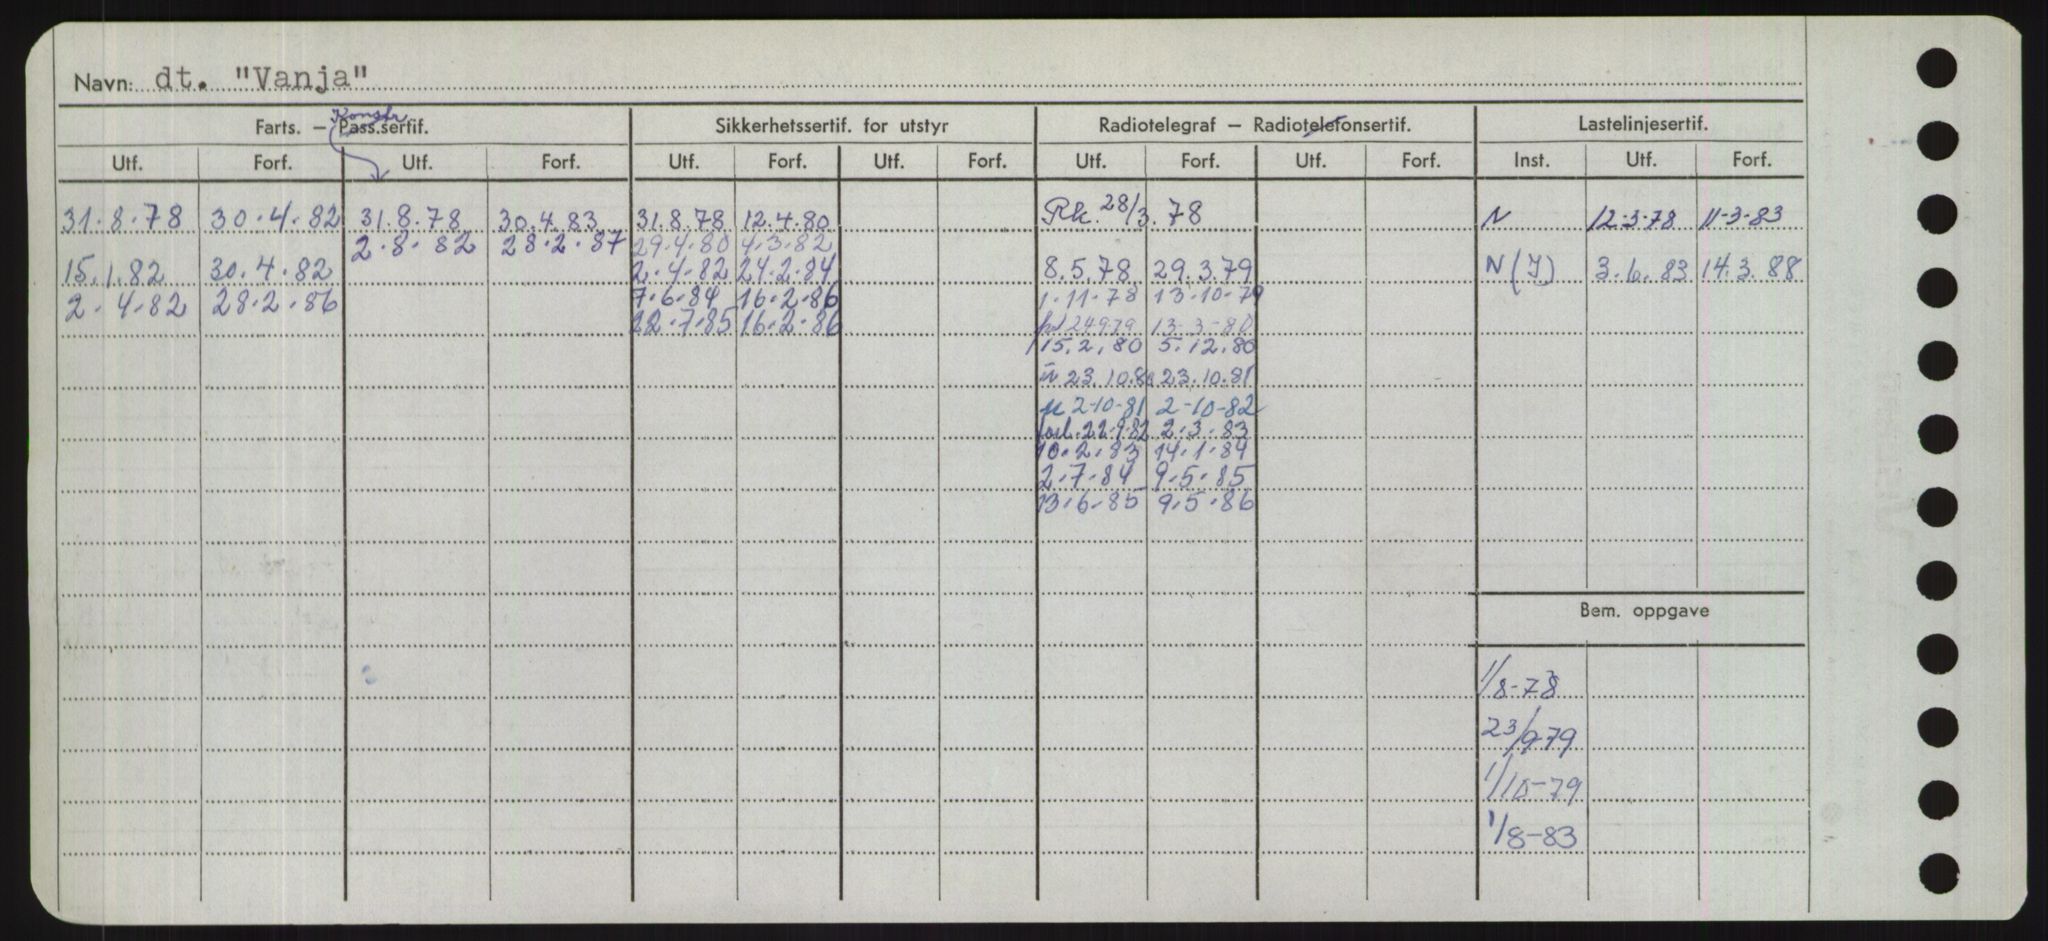 Navn: dt. "Vanja"
Konstr
Farts. — Pass.sertif. Sikkerhetssertif. for utstyr Radiotelegraf — Radiotelefonsertif. Lastelinjesertif.
Utf. Forf. Utf. Forf. Utf. Forf. Utf. Forf. Utf. Forf. Utf. Forf. Inst. Utf. Forf.
31.8.78 30.4.82 31.8.78 30.4.83 31.8.78 12.4.80 Rk. 28/3.78 N 12-3-78 11-3-83
2.8.82 28.2.87 29.4.80 4.3.82
15.1.82 30.4.82 2.4.82 24.2.84 8.5.78 29.3.79 N (I) 3.6.83 14.3.88
2.4.82 28.2.86 7.6.84 16.2.86 1.11.78 13-10-79
22.7.85 16.2.86 24979 13-3-80
15.2.80 5.12.80
23.10.80 23.10.81
2-10-81 2-10-82
forl. 22.9.82 2.3.83
10.2.83 14.1.84
2.7.84 9.5.85
13.6.85 9.5.86
Bem. oppgave
1/8-78
23/9-79
1/10-79
1/8-83